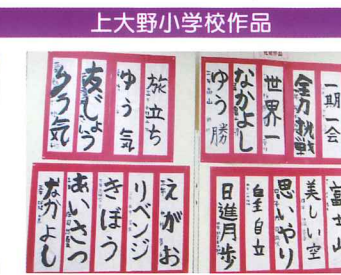 上大野小学校作品
旅立ち
ゆう気
友じょう
ゆう気
一期一会
全力挑戦
世界一
なかよし
ゆう勝
えがお
リベンジ
きぼう
あいさつ
なかよし
富士山
美しい空
思いやり
自主自立
日進月歩